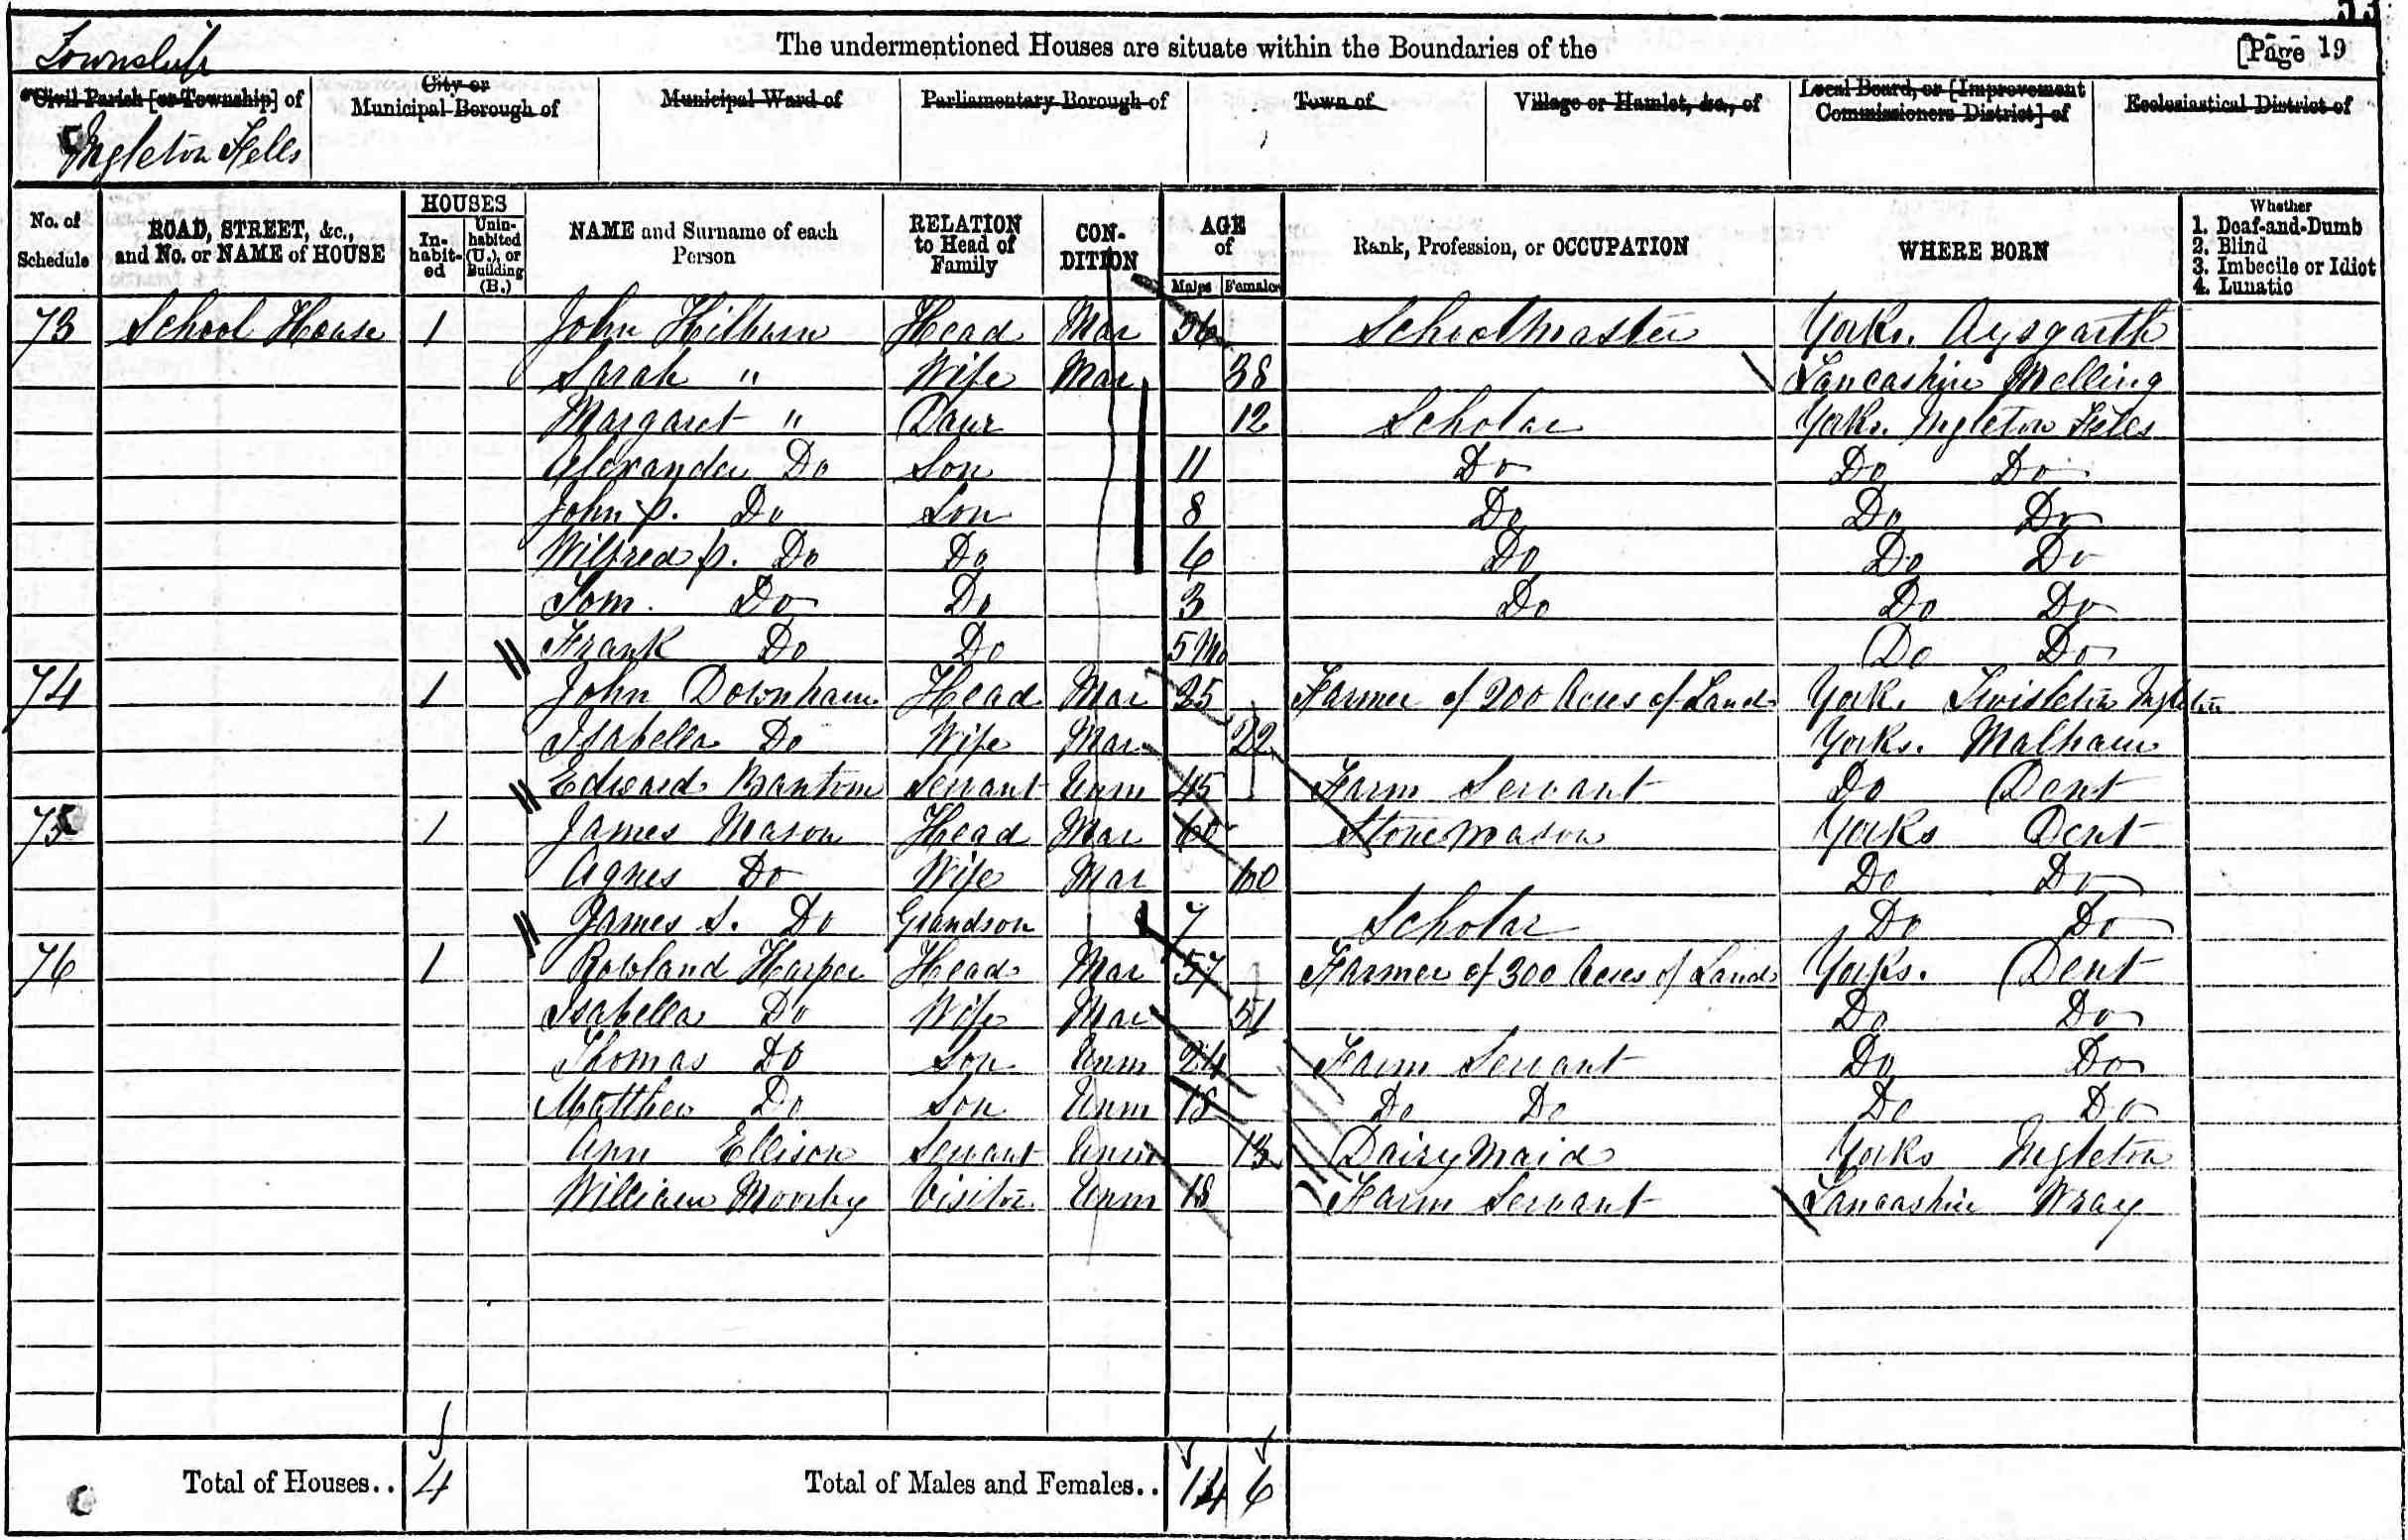 53
Township
The undermentioned Houses are situate within the Boundaries of the
[Page 19
Civil Parish [or Township] of
City or Municipal Borough of
Municipal Ward of
Parliamentary Borough of
Town of
Village or Hamlet, &c., of
Local Board, or [Improvement Commissioners District] of
Ecclesiastical District of
Ingleton Fells
No. of Schedule
ROAD, STREET, &c., and No. or NAME of HOUSE
HOUSES
In-habit-ed
Unin-habited (U.), or Building (B.)
NAME and Surname of each Person
RELATION to Head of Family
CON-DITION
AGE of
Males Females
Rank, Profession, or OCCUPATION
WHERE BORN
Whether
1. Deaf-and-Dumb
2. Blind
3. Imbecile or Idiot
4. Lunatic
73 School House 1 John Hilburn Head Mar 36 Schoolmaster Yorks. Aysgarth
Sarah " Wife Mar 38 Lancashire Melling
Margaret " Daur 12 Scholar Yorks. Ingleton Fells
Alexander Do Son 11 Do Do Do
John P. Do Son 8 Do Do Do
Wilfred P. Do Do 6 Do Do Do
Tom. Do Do 3 Do Do Do
Frank Do Do 5 Mo Do Do
74 1 John Downham Head Mar 25 Farmer of 200 Acres of Land York. Twisleton Ingleton
Isabella Do Wife Mar 22 Yorks. Malham
Edward Servant Unm 45 Farm Servant Do Dent
75 1 James Mason Head Mar 60 Stonemason Yorks Dent
Agnes Do Wife Mar 60 Do Do
James S. Do Grandson 7 Scholar Do Do
76 1 Rowland Harper Head Mar 57 Farmer of 300 Acres of Land Yorks. Dent
Isabella Do Wife Mar 51 Do Do
Thomas Do Son Unm 24 Farm Servant Do Do
Matthew Do Son Unm 18 Do Do Do Do
Ann Ellison Servant Unm 13 Dairy Maid Yorks Ingleton
William Moorby Visitor Unm 18 Farm Servant Lancashire Wray
Total of Houses.. 4
Total of Males and Females.. 14 6